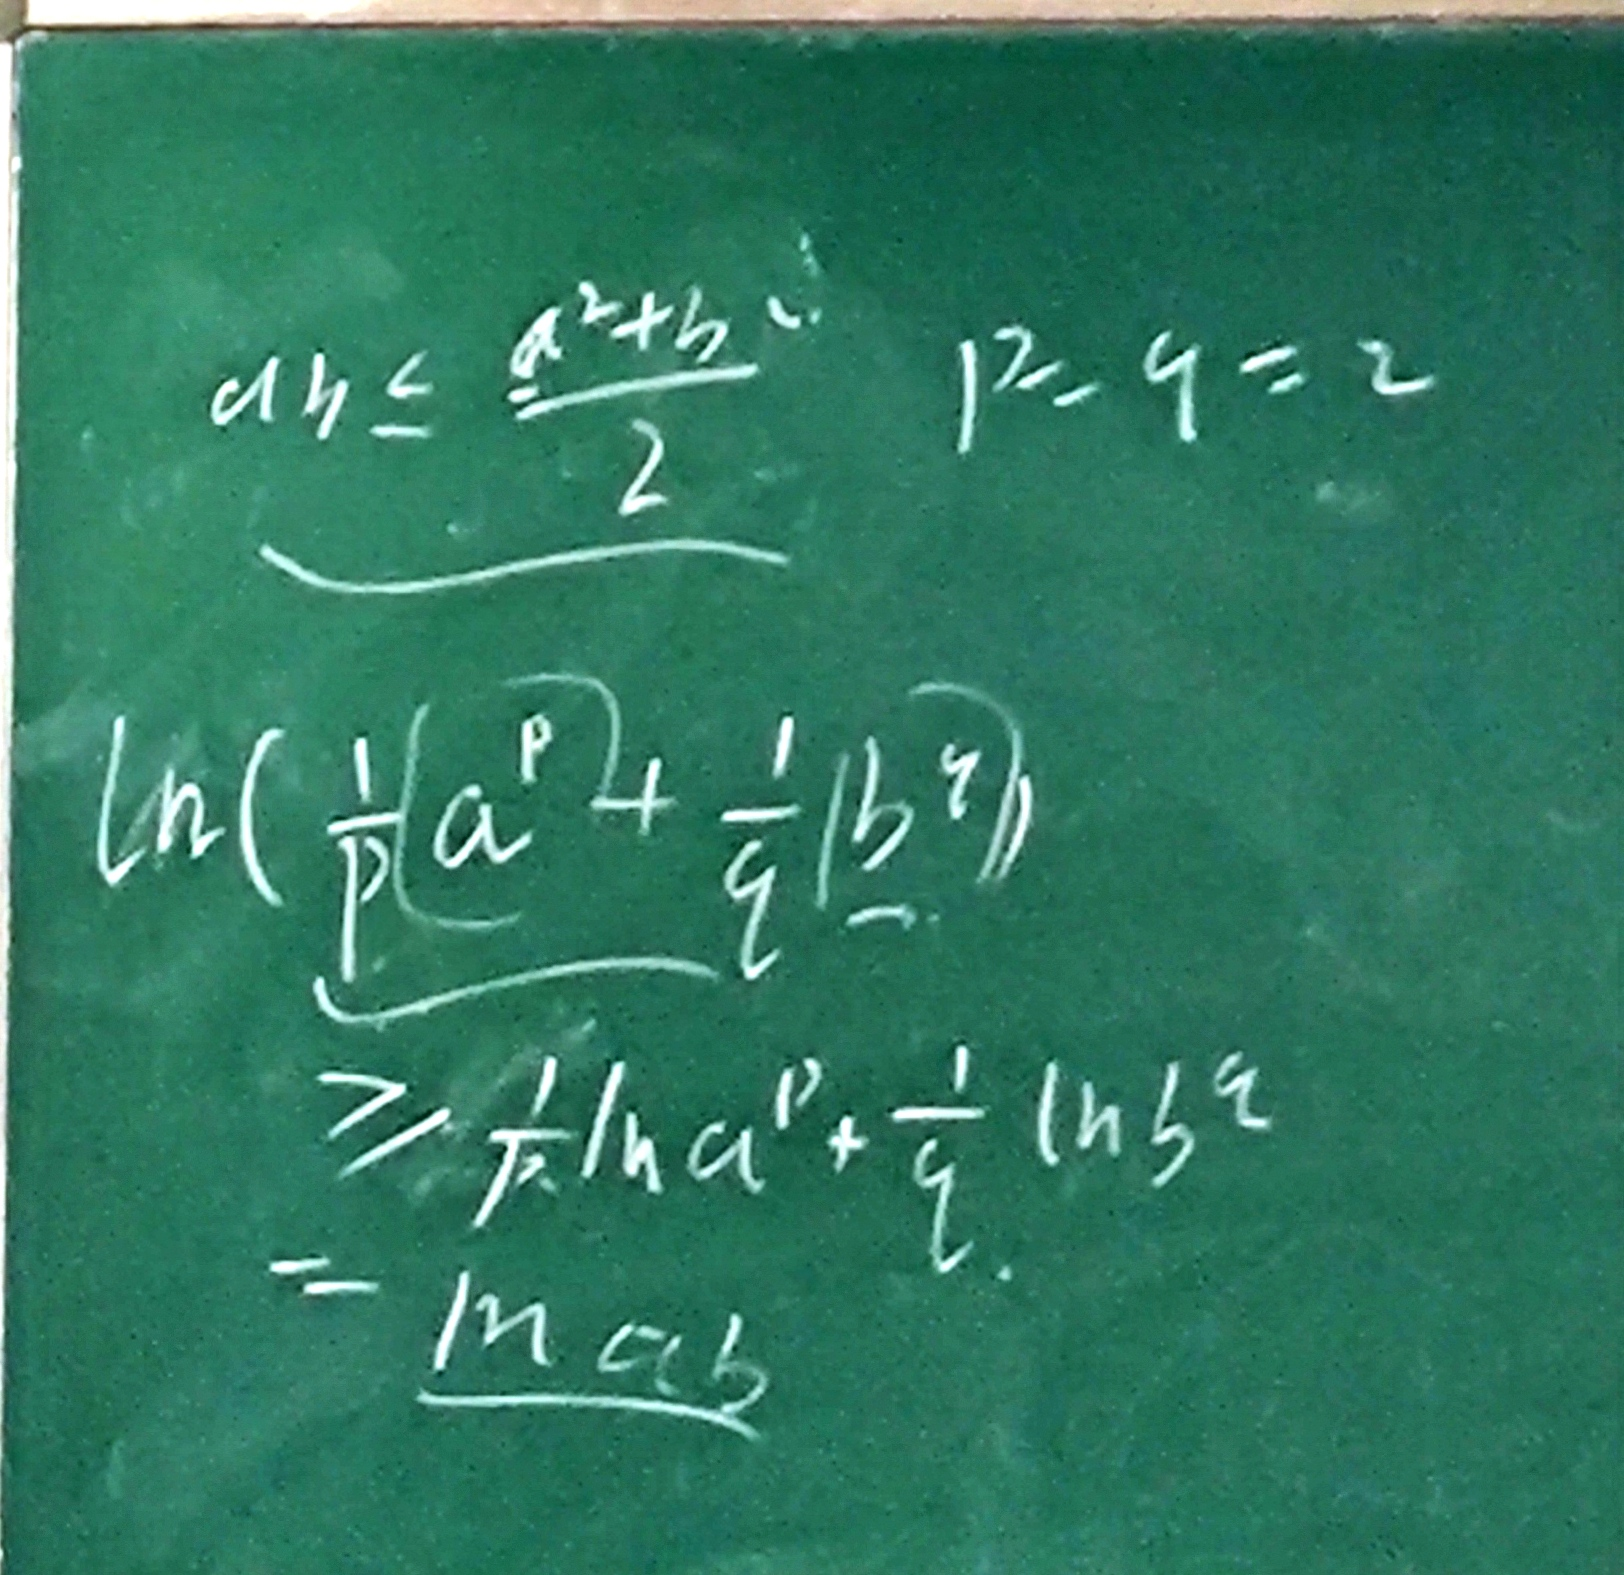 ab ≤ (a²+b²)/2 p = q = 2
ln( 1/p (a^p) + 1/q (b^q))
≥ 1/p ln a^p + 1/q ln b^q.
= ln ab